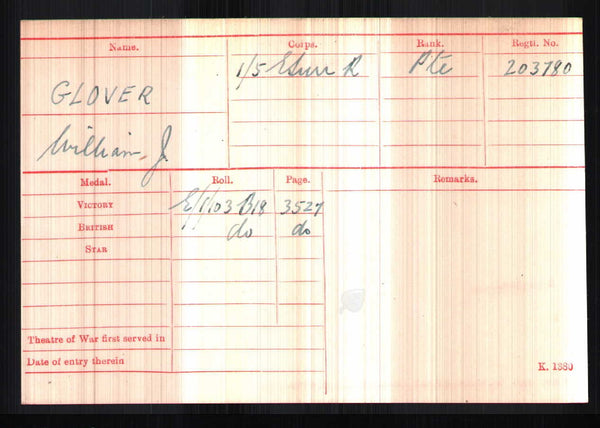 Name. Corps. Rank. Regtl. No.
GLOVER 1/5 E Surr R Pte 203780
William, J.
Medal. Roll. Page. Remarks.
VICTORY E/1/103 B18 3527
BRITISH do do
STAR
Theatre of War first served in
Date of entry therein
K. 1380